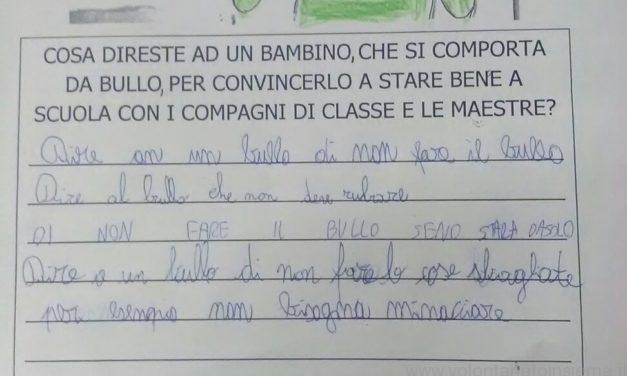 COSA DIRESTE AD UN BAMBINO, CHE SI COMPORTA
DA BULLO, PER CONVINCERLO A STARE BENE A
SCUOLA CON I COMPAGNI DI CLASSE E LE MAESTRE?
Dire an un bullo di non fare il bullo
Dire al bullo che non deve rubare
DI NON FARE IL BULLO SENO STARA DASOLO
Dire a un bullo di non fare lo cose sbagliate
per esenpio non bisogna minaciare
www.volontariatoinsieme.it